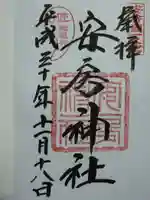 奉拝
安房神社
平成三十年十一月十八日